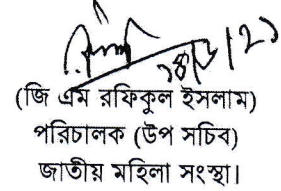 (জি এম রফিকুল ইসলাম)
পরিচালক (উপ সচিব)
জাতীয় মহিলা সংস্থা।